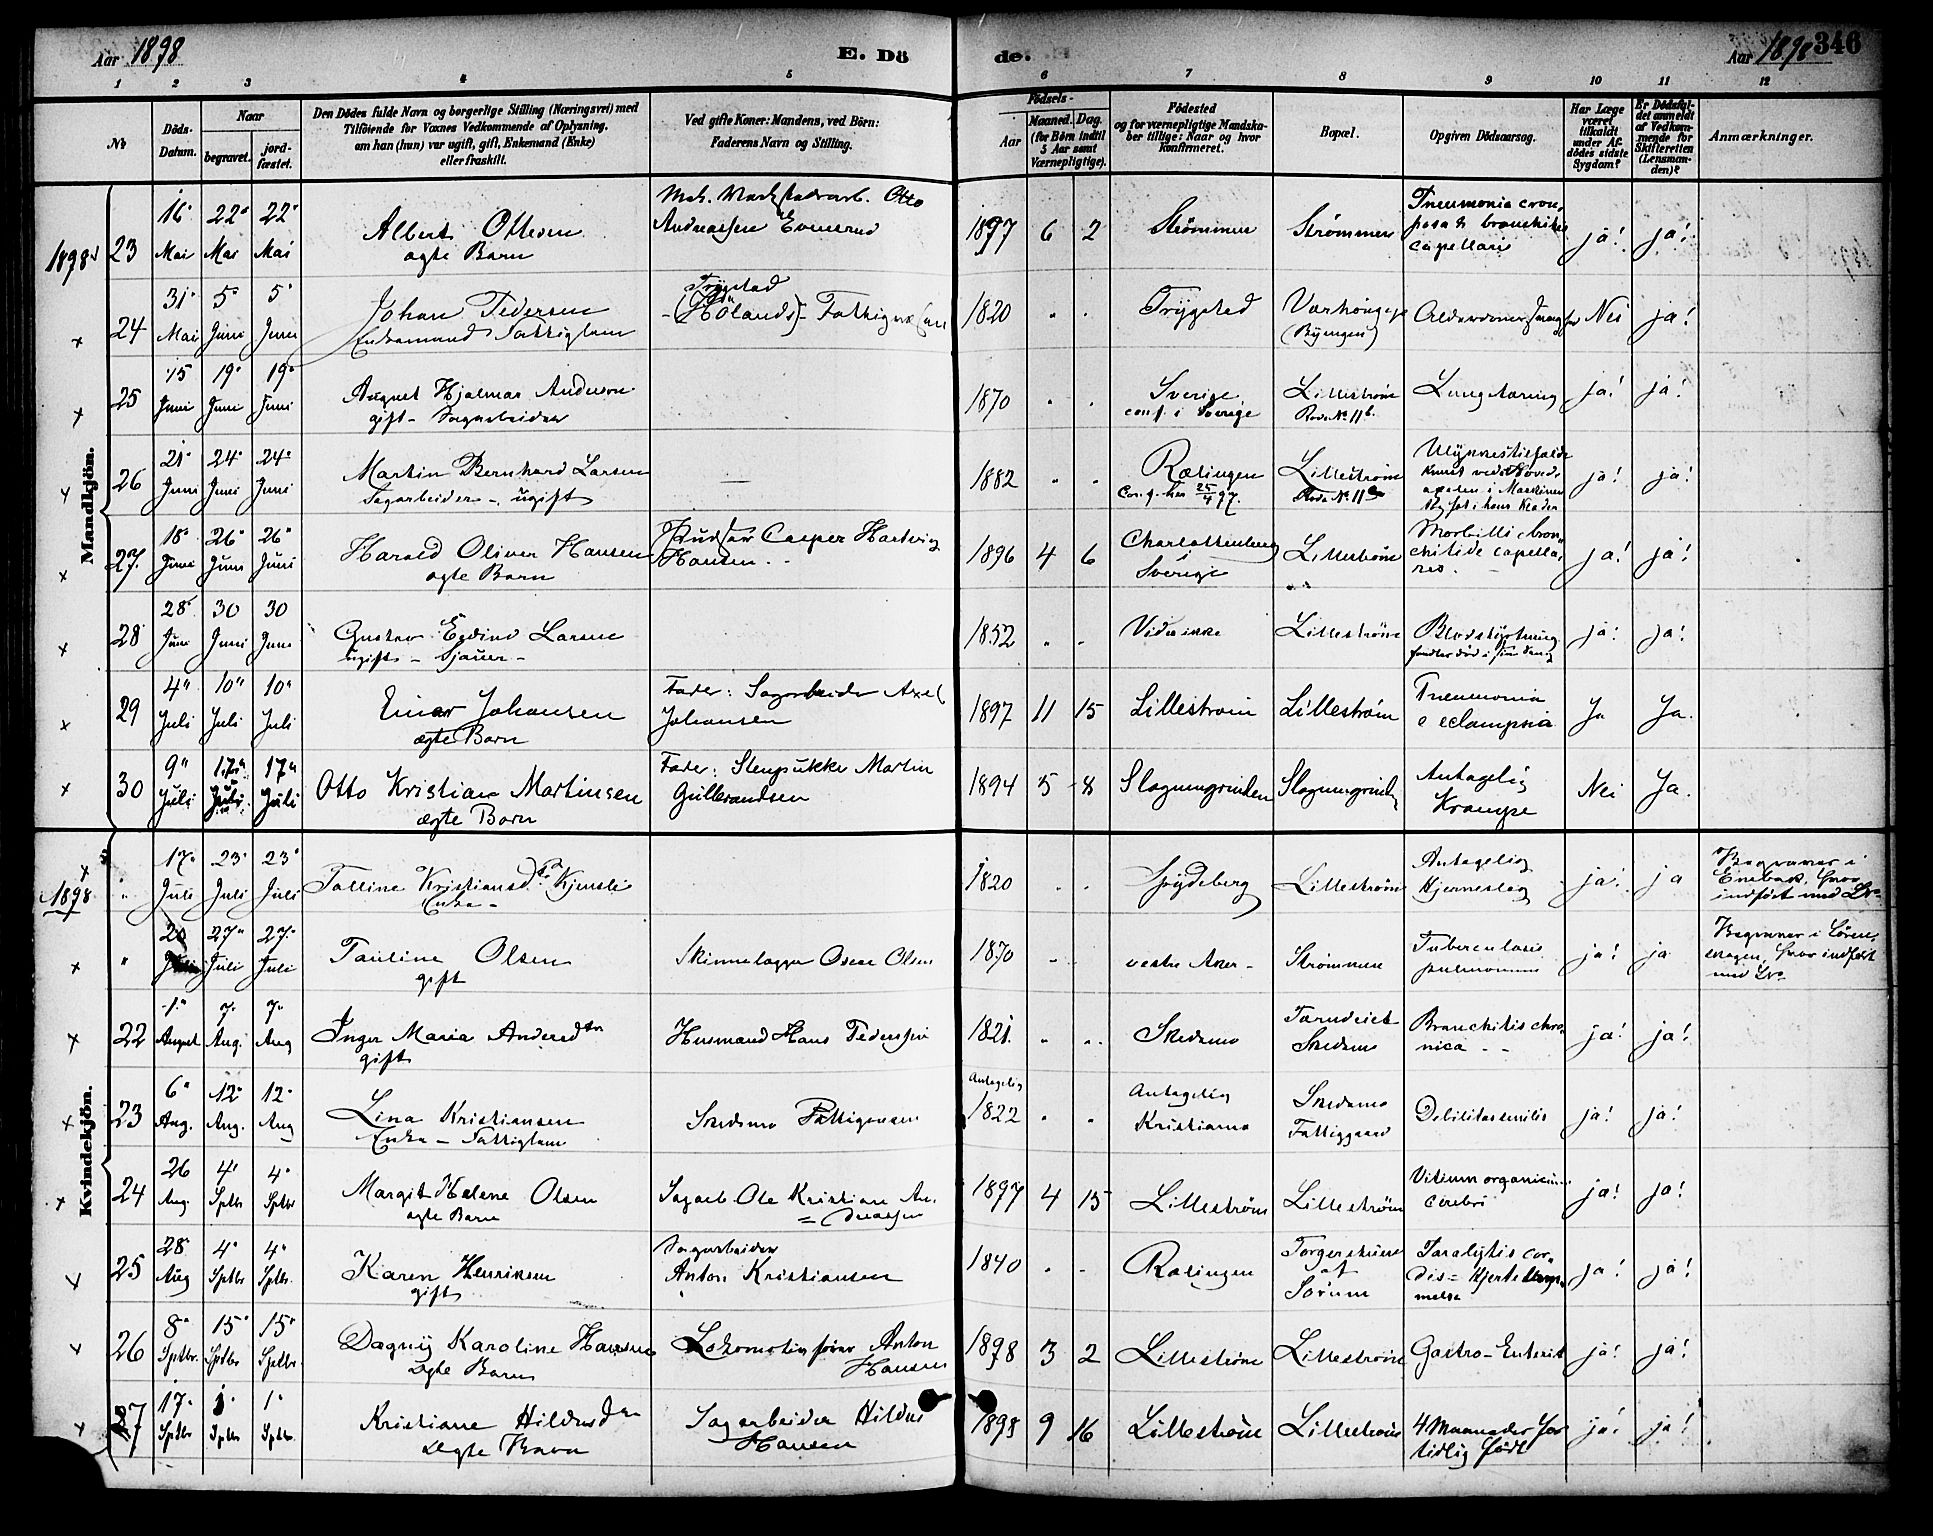 Aar 1898
E. Dö
de.
Aar 1898
346
1 2 3 4 5 6 7 8 9 10 11 12
No
Döds-
Datum.
Naar
begravet.
jord-
fæstet.
Den Dödes fulde Navn og borgerlige Stilling (Næringsvei) med
Tilföiende for Voxnes Vedkommende af Oplysning,
om han (hun) var ugift, gift, Enkemand (Enke)
eller fraskilt.
Ved gifte Koner: Mandens, ved Börn:
Faderens Navn og Stilling.
Födsels-
Aar
Maaned. Dag.
(for Börn indtil
5 Aar samt
Værnepligtige).
Födested
og for værnepligtige Mandska-
ber tillige: Naar og hvor
konfirmeret.
Bopæl.
Opgiven Dödsaarsag.
Har Læge
været
tilkaldt
under Af-
dödes sidste
Sygdom?
Er Dödsfal-
det anmeldt
af Vedkom-
mende for
Skifteretten
(Lensman-
den)?
Anmærkninger.
Mandkjön.
1898
23 16 Mai 22 Mai 22 Mai
Albert Ottesen
ægte Barn
Otto
Andreassen
1897 6 2 Strømmen Strømmen
Pneumonia crou-
posa & bronchitis
capellaris
ja! ja!
24 31 Mai 5 Juni 5 Juni
Johan Pedersen
Enkemand Fattiglem
Trygstad
(Hölands)
1820 Trygstad
Nei ja!
25 15 Juni 19 Juni 19 Juni
August Hjalmar Anderson
gift - Sagarbeider
1870 Sverige
conf. i Sverige
Lillestrøm
Rode No 11b
Lungetæring ja! ja!
26 21 Juni 24 Juni 24 Juni
Martin Bernhard Larsen
Sagarbeider - ugift
1882 Rælingen
Conf. her 25/4 97.
Lillestrøm
Rode No 11
Ulykkestilfælde
ja! ja!
27 18 Juni 26 Juni 26 Juni
Harald Oliver Hansen
ægte Barn
Casper Hartvig
Hansen
1896 4 6 Charlottenberg
i
Sverige
Lillestrøm
Morbilli & bron-
chitide capella-
res
ja! ja!
28 28 Juni 30 Juni 30 Juni
Gustav Edvind Larsen
ugift - Sjauer -
1852 Vides ikke Lillestrøm
Blodstyrtning
ja! ja!
29 4 Juli 10 Juli 10 Juli
Einar Johansen
ægte Barn
Fader: Sagarbeider Axel
Johansen
1897 11 15 Lillestrøm Lillestrøm
Pneumonia
e eclampsia
Ja Ja.
30 9 Juli 17 Juli 17 Juli
Otto Kristian Martinsen
ægte Barn
Fader: Stenpukker Martin
Gulbrandsen
1894 5 8
Antagelig
Krampe
Nei Ja.
Kvindekjön.
1898
" 17 Juli 23 Juli 23 Juli
Enke -
1820 Spydeberg Lillestrøm
Antagelig
Hjerneslag
ja! ja
Begraves i
Enebak, hvor
indført med No
" 20 Juli 27 Juli 27 Juli
Pauline Olsen
gift
Skinnelægger Oscar Olsen
1870 vestre Aker - Strømmen
Tuberculosis
pulmonum
ja! ja
Begraves i Lören-
skogen, hvor indført
med No
22 1 August 7 Aug. 7 Aug
Inger Maria Andersdtr
gift
Husmand Hans Pedersen
1821. Skedsmo
Skedsmo
Bronchitis chro-
nica
ja! ja!
23 6 Aug. 12 Aug. 12 Aug
Lina Kristiansen
Enke - Fattiglem
Skedsmo Fattigvæsen
Antagelig
1822
Antagelig
Kristiania
Skedsmo
Fattiggaard
Debilitas senilis
ja! ja!
24 26 Aug. 4 Sptbr 4 Sptbr
Margit Helene Olsen
ægte Barn
Sagarb. Ole Kristian An-
dreasen
1897 4 15 Lillestrøm Lillestrøm
Vitium organicum
cerebri
ja! ja!
25 28 Aug 4 Sptbr 4 Sptbr.
Karen Henriksen
gift
Sagarbeider
Anton Kristiansen
1840 Rælingen
af
Sørum
Paralysis cor-
dis = Hjertelam-
melse
ja! ja!
26 8 Sptbr. 15 Sptbr 15 Sptbr.
Dagny Karoline Hansen
Ægte Barn
Lokomotivfører Anton
Hansen
1898 3 2 Lillestrøm Lillestrøm
Gastro-Enterit ja! ja!
27 17 Sptbr 1 Sptbr 1 Sptbr.
Kristiane Hildusdtr
Ægte Barn
Sagarbeider Hildus
Hansen
1898 9 16 Lillestrøm Lillestrøm
4 Maaneder for
tidlig født
ja! ja!